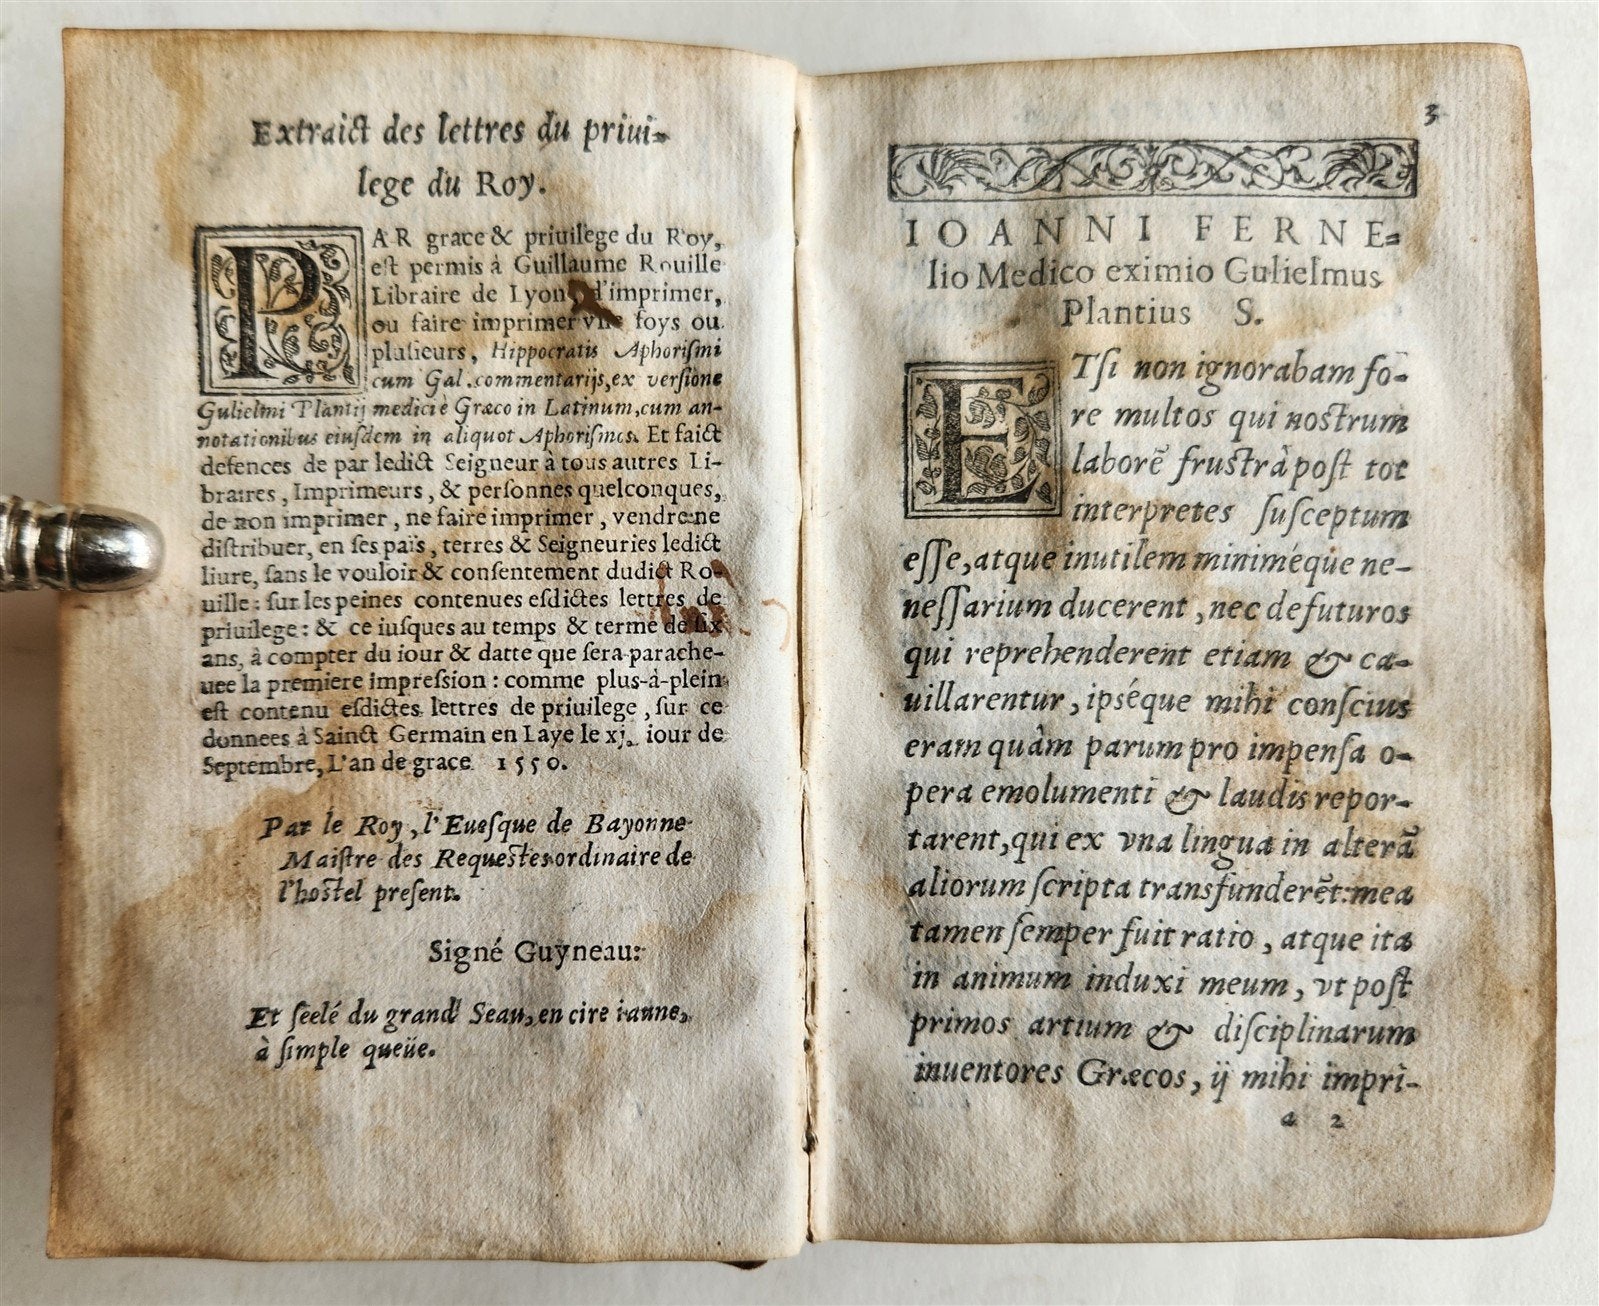 Extraict des lettres du priui-
lege du Roy.
PAR grace & priuilege du Roy,
est permis à Guillaume Rouille
Libraire de Lyon, d'imprimer,
ou faire imprimer vne foys ou
plusieurs, Hippocratis Aphoriſmi
cum Gal. commentarijs, ex verſione
Gulielmi Plantij medici è Græco in Latinum, cum an-
notationibus eiuſdem in aliquot Aphoriſmos. Et faict
defences de par ledict Seigneur à tous autres Li-
braires, Imprimeurs, & perſonnes quelconques,
de non imprimer, ne faire imprimer, vendre ne
diſtribuer, en ſes païs, terres & Seigneuries ledict
liure, ſans le vouloir & conſentement dudict Ro-
uille: ſur les peines contenues eſdictes lettres de
priuilege: & ce iuſques au temps & terme de ſix
ans, à compter du iour & datte que ſera parache-
uee la premiere impreſſion: comme plus-à-plein
est contenu eſdictes lettres de priuilege, ſur ce
donnees à Sainct Germain en Laye le xj. iour de
Septembre, L'an de grace 1550.
Par le Roy, l'Eueſque de Bayonne
Maiſtre des Requeſtes ordinaire de
l'hoſtel preſent.
Signé Guÿneau:
Et ſeelé du grand Seau, en cire iaune,
à ſimple queüe.
3
IOANNI FERNE-
lio Medico eximio Gulielmus
Plantius S.
ETſi non ignorabam fo-
re multos qui noſtrum
laborē fruſtrà poſt tot
interpretes ſuſceptum
eſſe, atque inutilem miniméque ne-
neſſarium ducerent, nec defuturos
qui reprehenderent etiam & ca-
uillarentur, ipséque mihi conſcius
eram quàm parum pro impenſa o-
pera emolumenti & laudis repor-
tarent, qui ex vna lingua in alterā
aliorum ſcripta transfunderēt: mea
tamen ſemper fuit ratio, atque ita
in animum induxi meum, vt poſt
primos artium & diſciplinarum
inuentores Græcos, ij mihi impri-
a 2